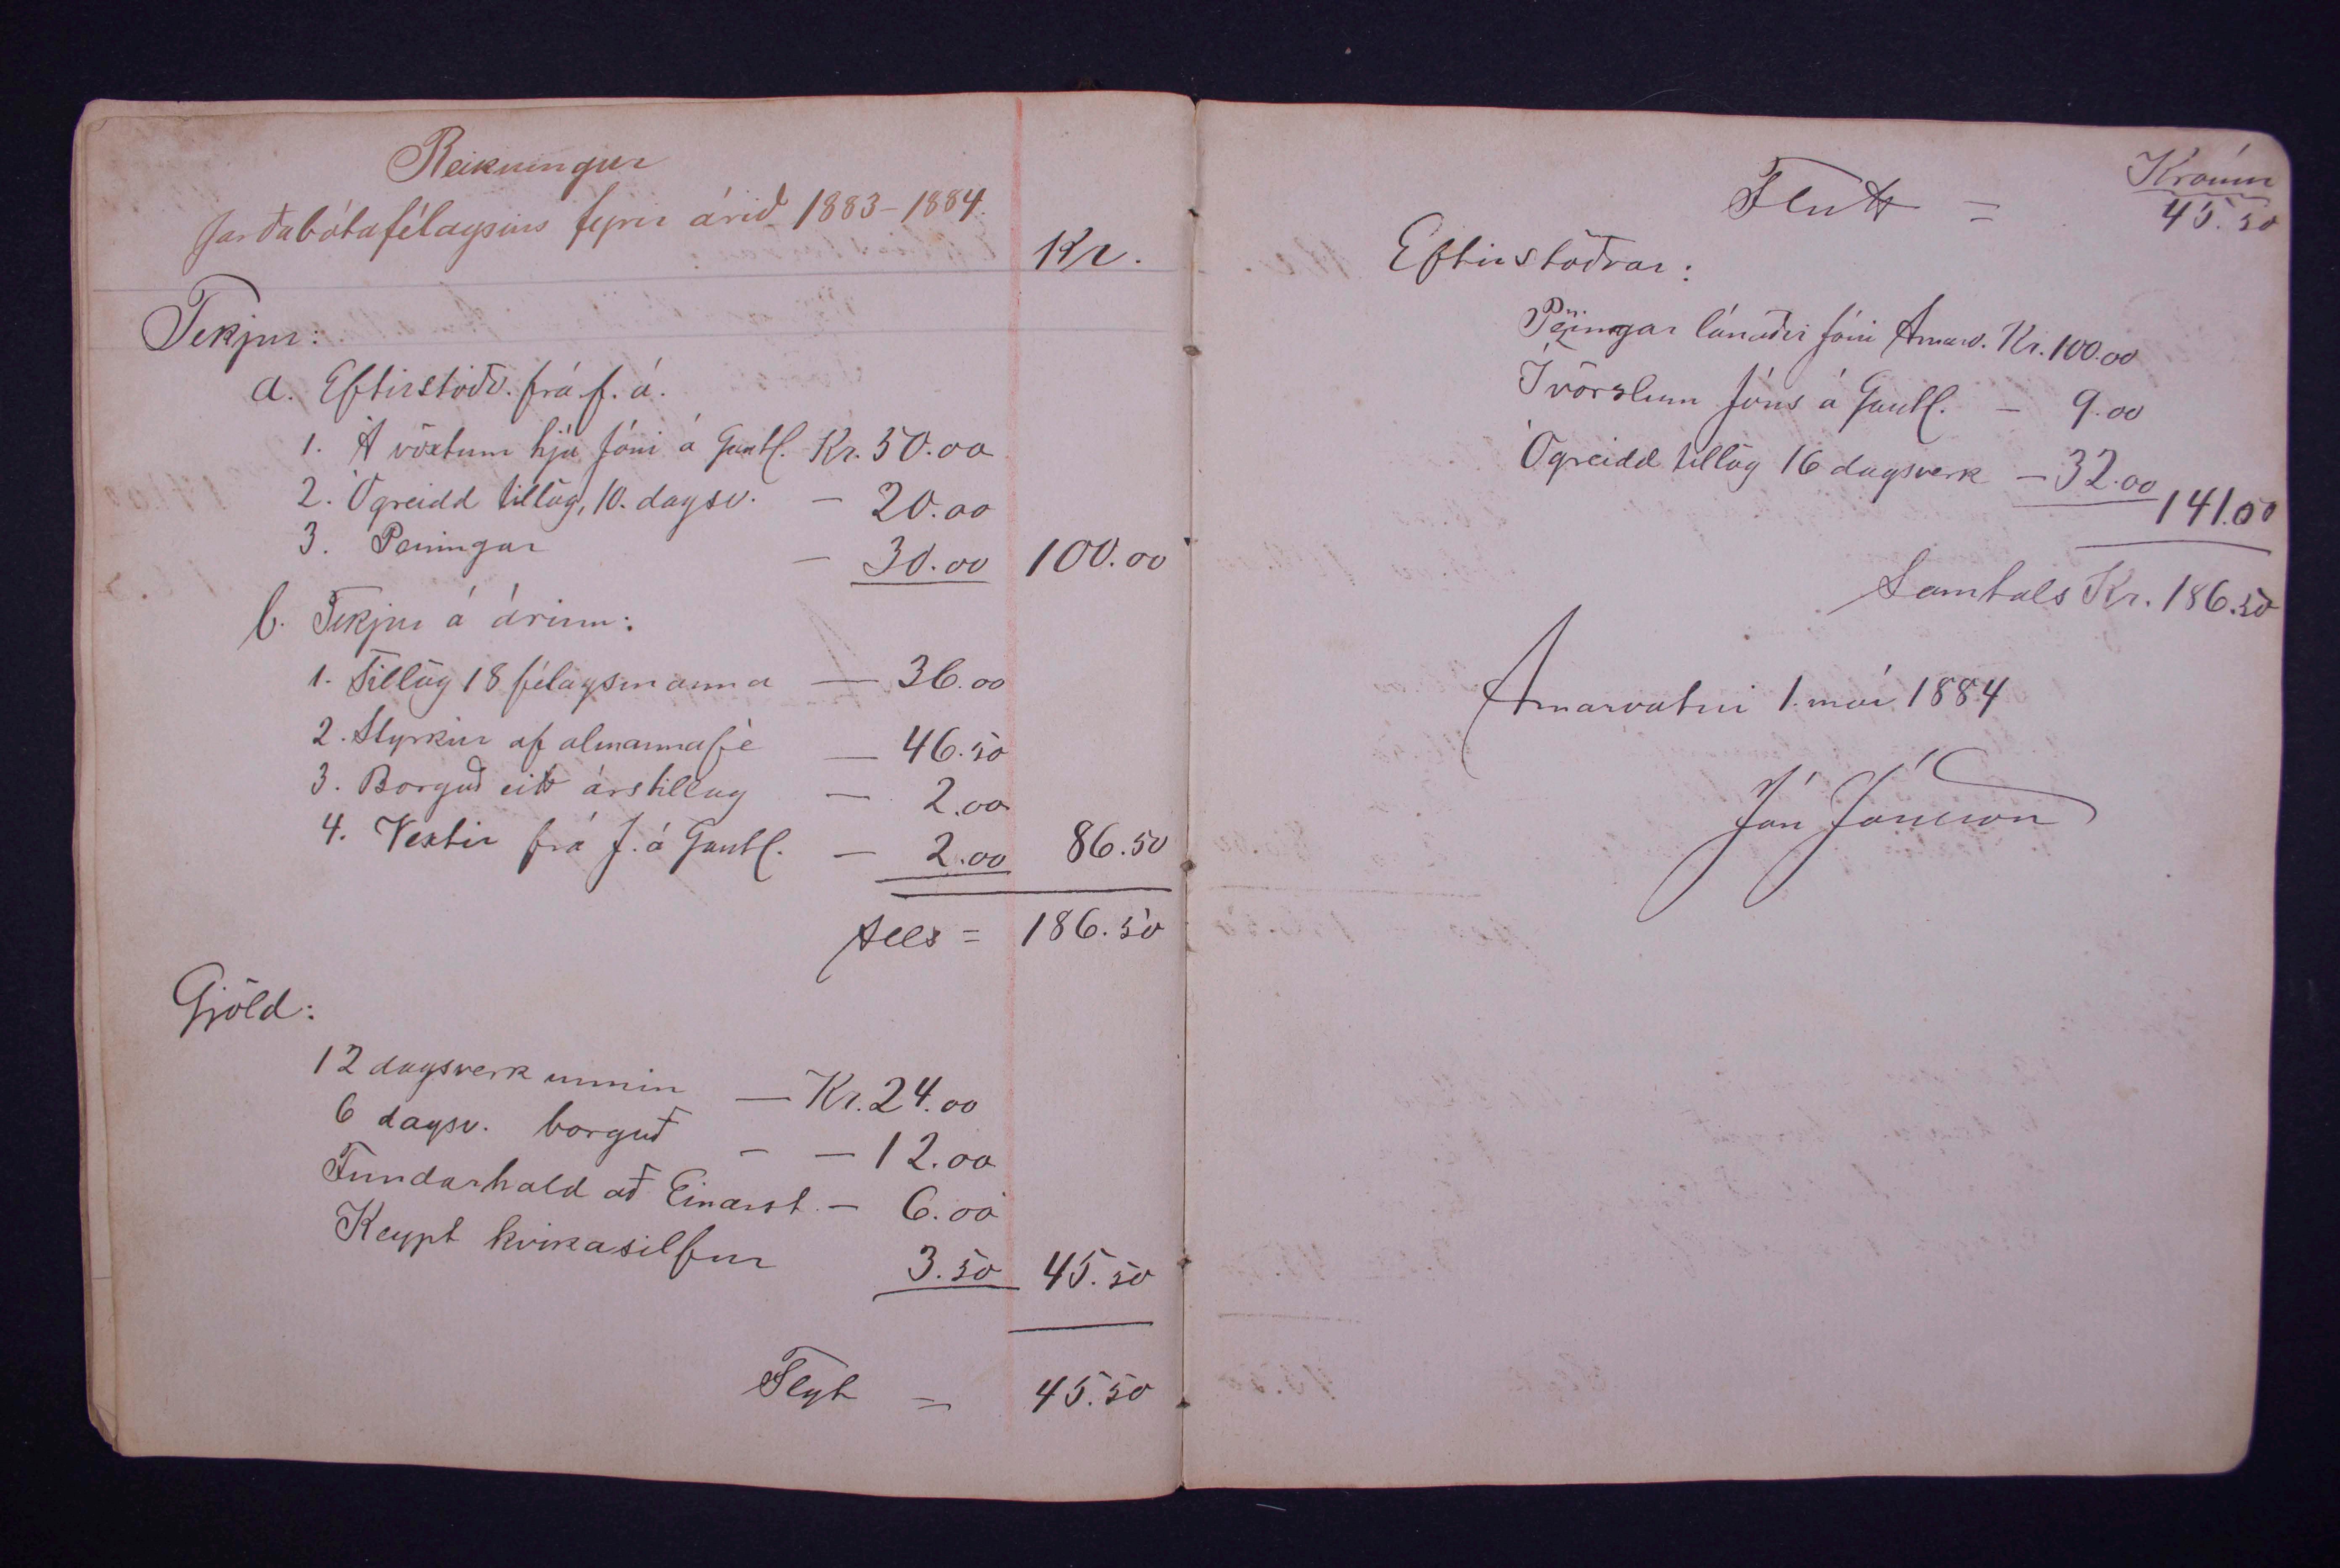 Reikningur
Jarðabótafélagsins fyrir árið 1883-1884.
Kr.
Tekjur:
a. Eftirstöðv. frá f. á.
1. Á vöxtum hjá Jóni á Gautl. Kr. 50.00
2. Ógreidd tillög, 10. dagsv. — 20.00
3. Peningar — 30.00 100.00
b. Tekjur á árinu:
1. Tillög 18 félagsmanna — 36.00
2. Styrkur af almannafé — 46.50
3. Borguð eitt árstillag — 2.00
4. Vextir frá J. á Gautl. — 2.00 86.50
Alls = 186.50
Gjöld:
12 dagsverk unnin — Kr. 24.00
6 dagsv. borguð - — 12.00
Fundarhald að Einarst. — 6.00
Keypt kvikasilfur 3.50 45.50
Flyt = 45.50
Krónur
Flutt = 45.50
Eftirstöðvar:
Peningar lánaðir Jóni Arnarv. Kr. 100.00
Í vörslum Jóns á Gautl. — 9.00
Ógreidd tillög 16 dagsverk — 32.00
141.00
Samtals Kr. 186.50
Arnarvatni 1. maí 1884
Jón Jónsson